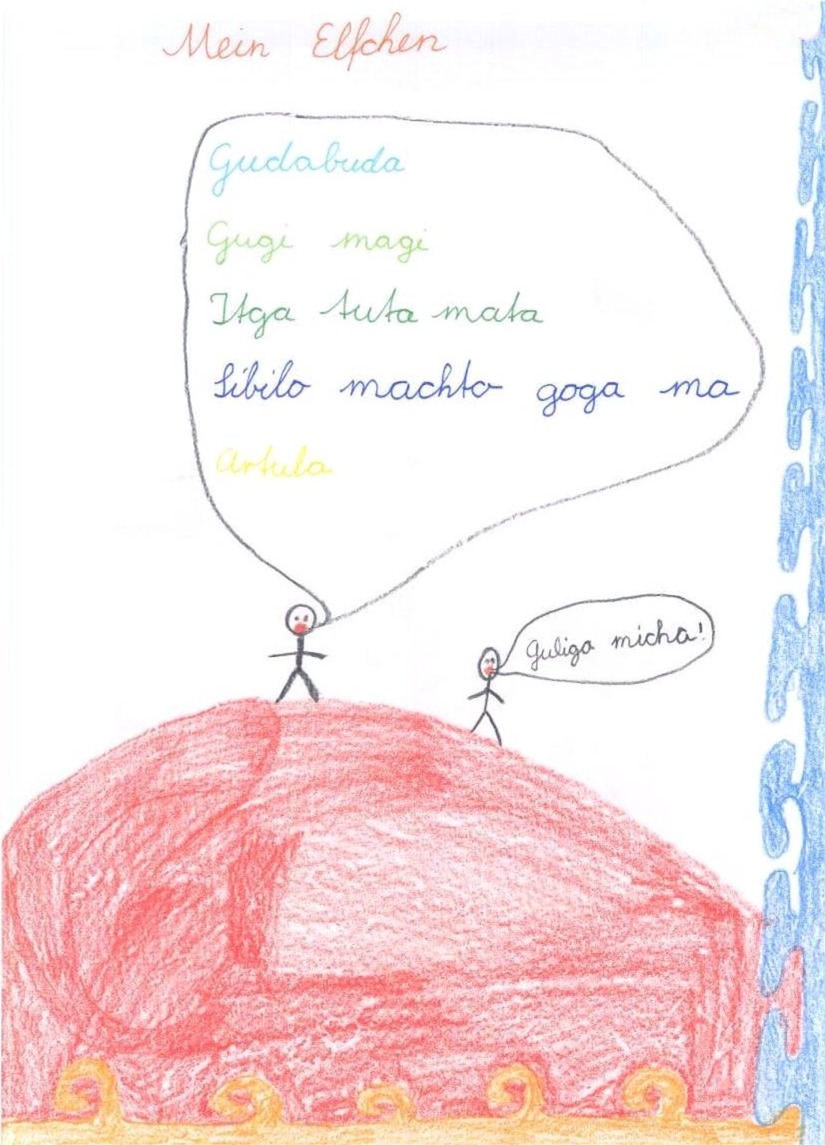 Mein Elfchen
Gudabuda
Gugi magi
Itga tuta mata
Sibilo machto goga ma
Artula
Guliga micha!